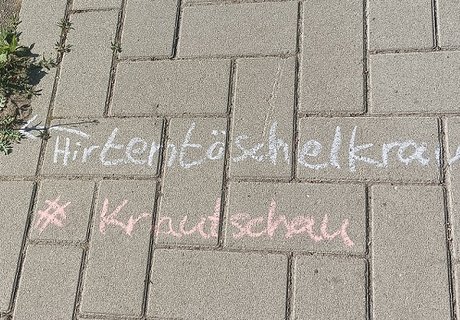 ← Hirtentöschelkrau
# Krautschau